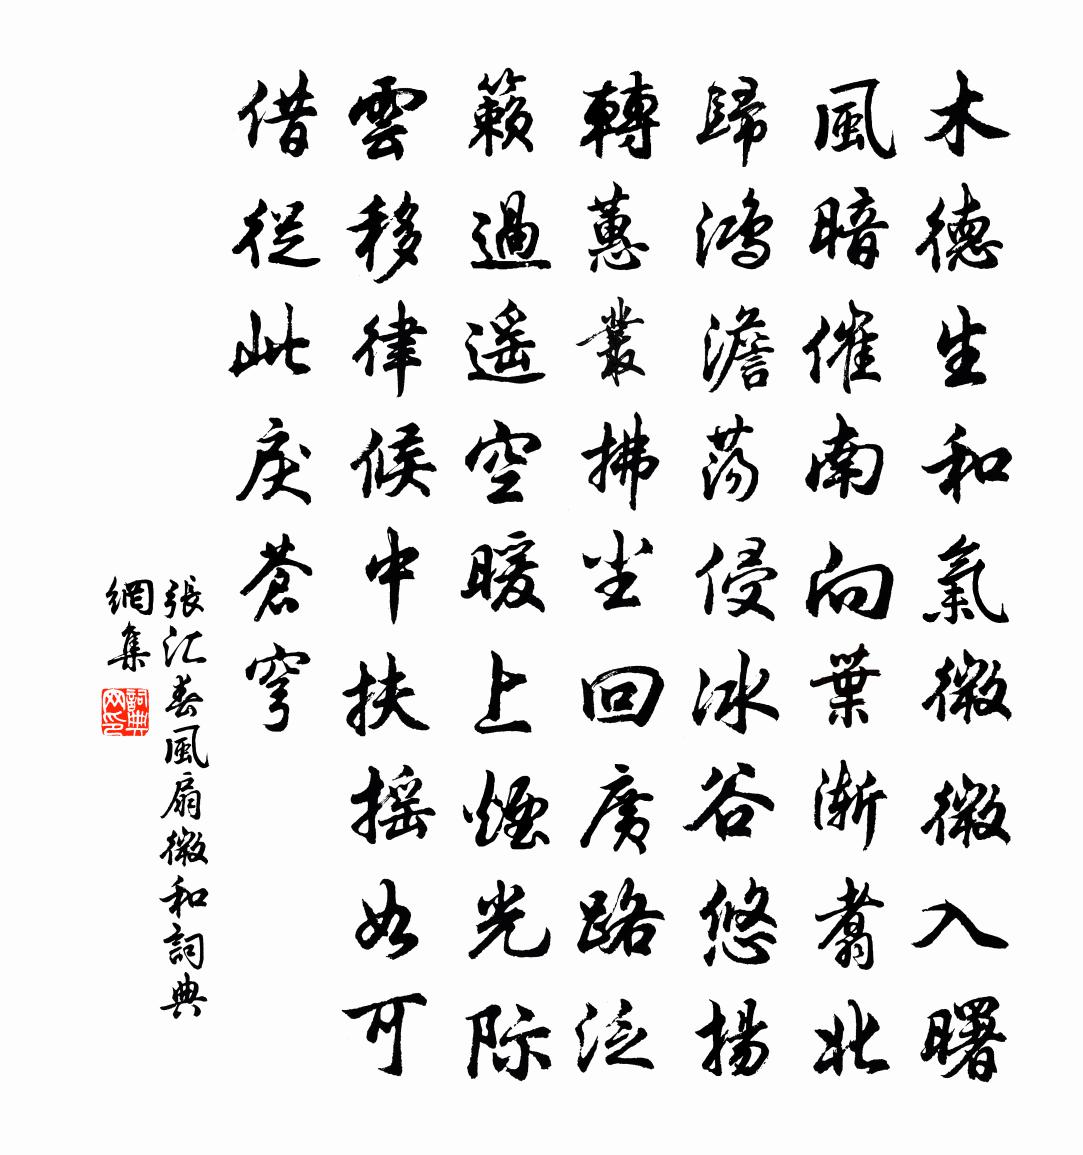 木德生和氣微微入曙
風暗催南向葉漸翥北
歸鴻澹蕩侵冰谷悠揚
轉蕙叢拂尘回廣路泛
籟過遥空暖上煙光际
雲移律候中扶摇如可
借從此戾蒼穹
張汇春風扇微和詞典
網集
詞典
网印